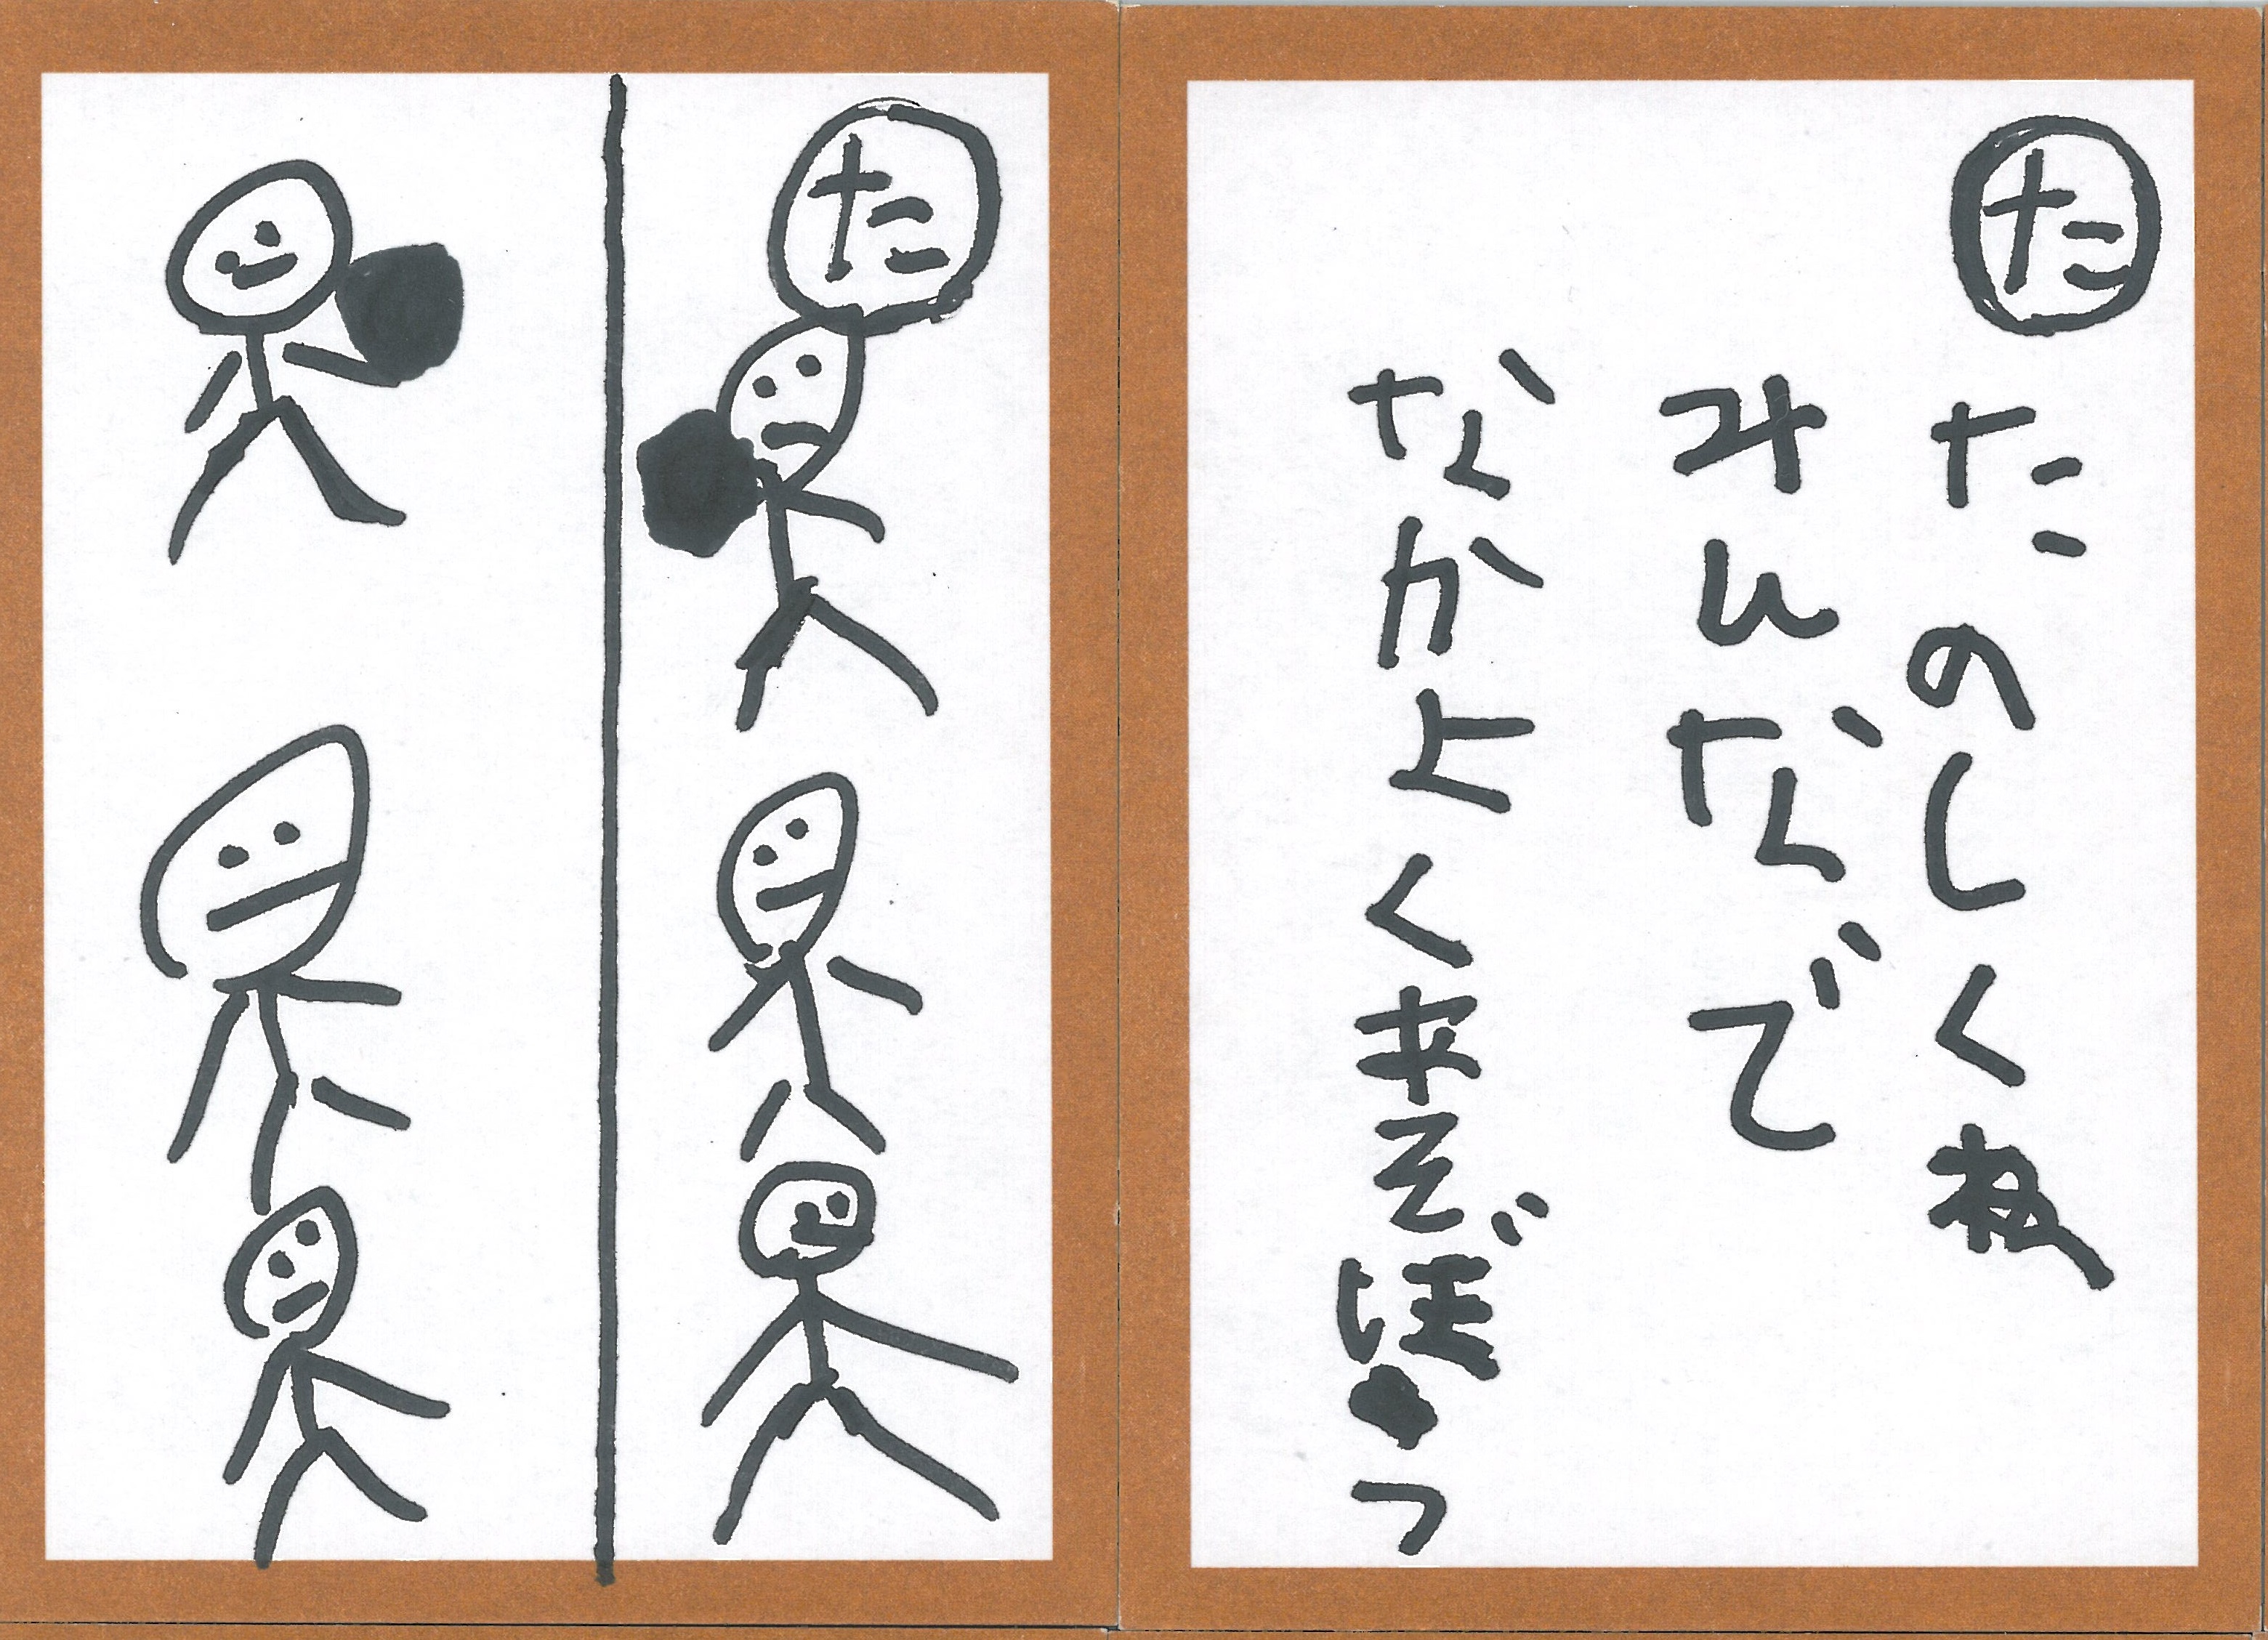 た
たのしくね
みんなで
なかよくあそぼう
た